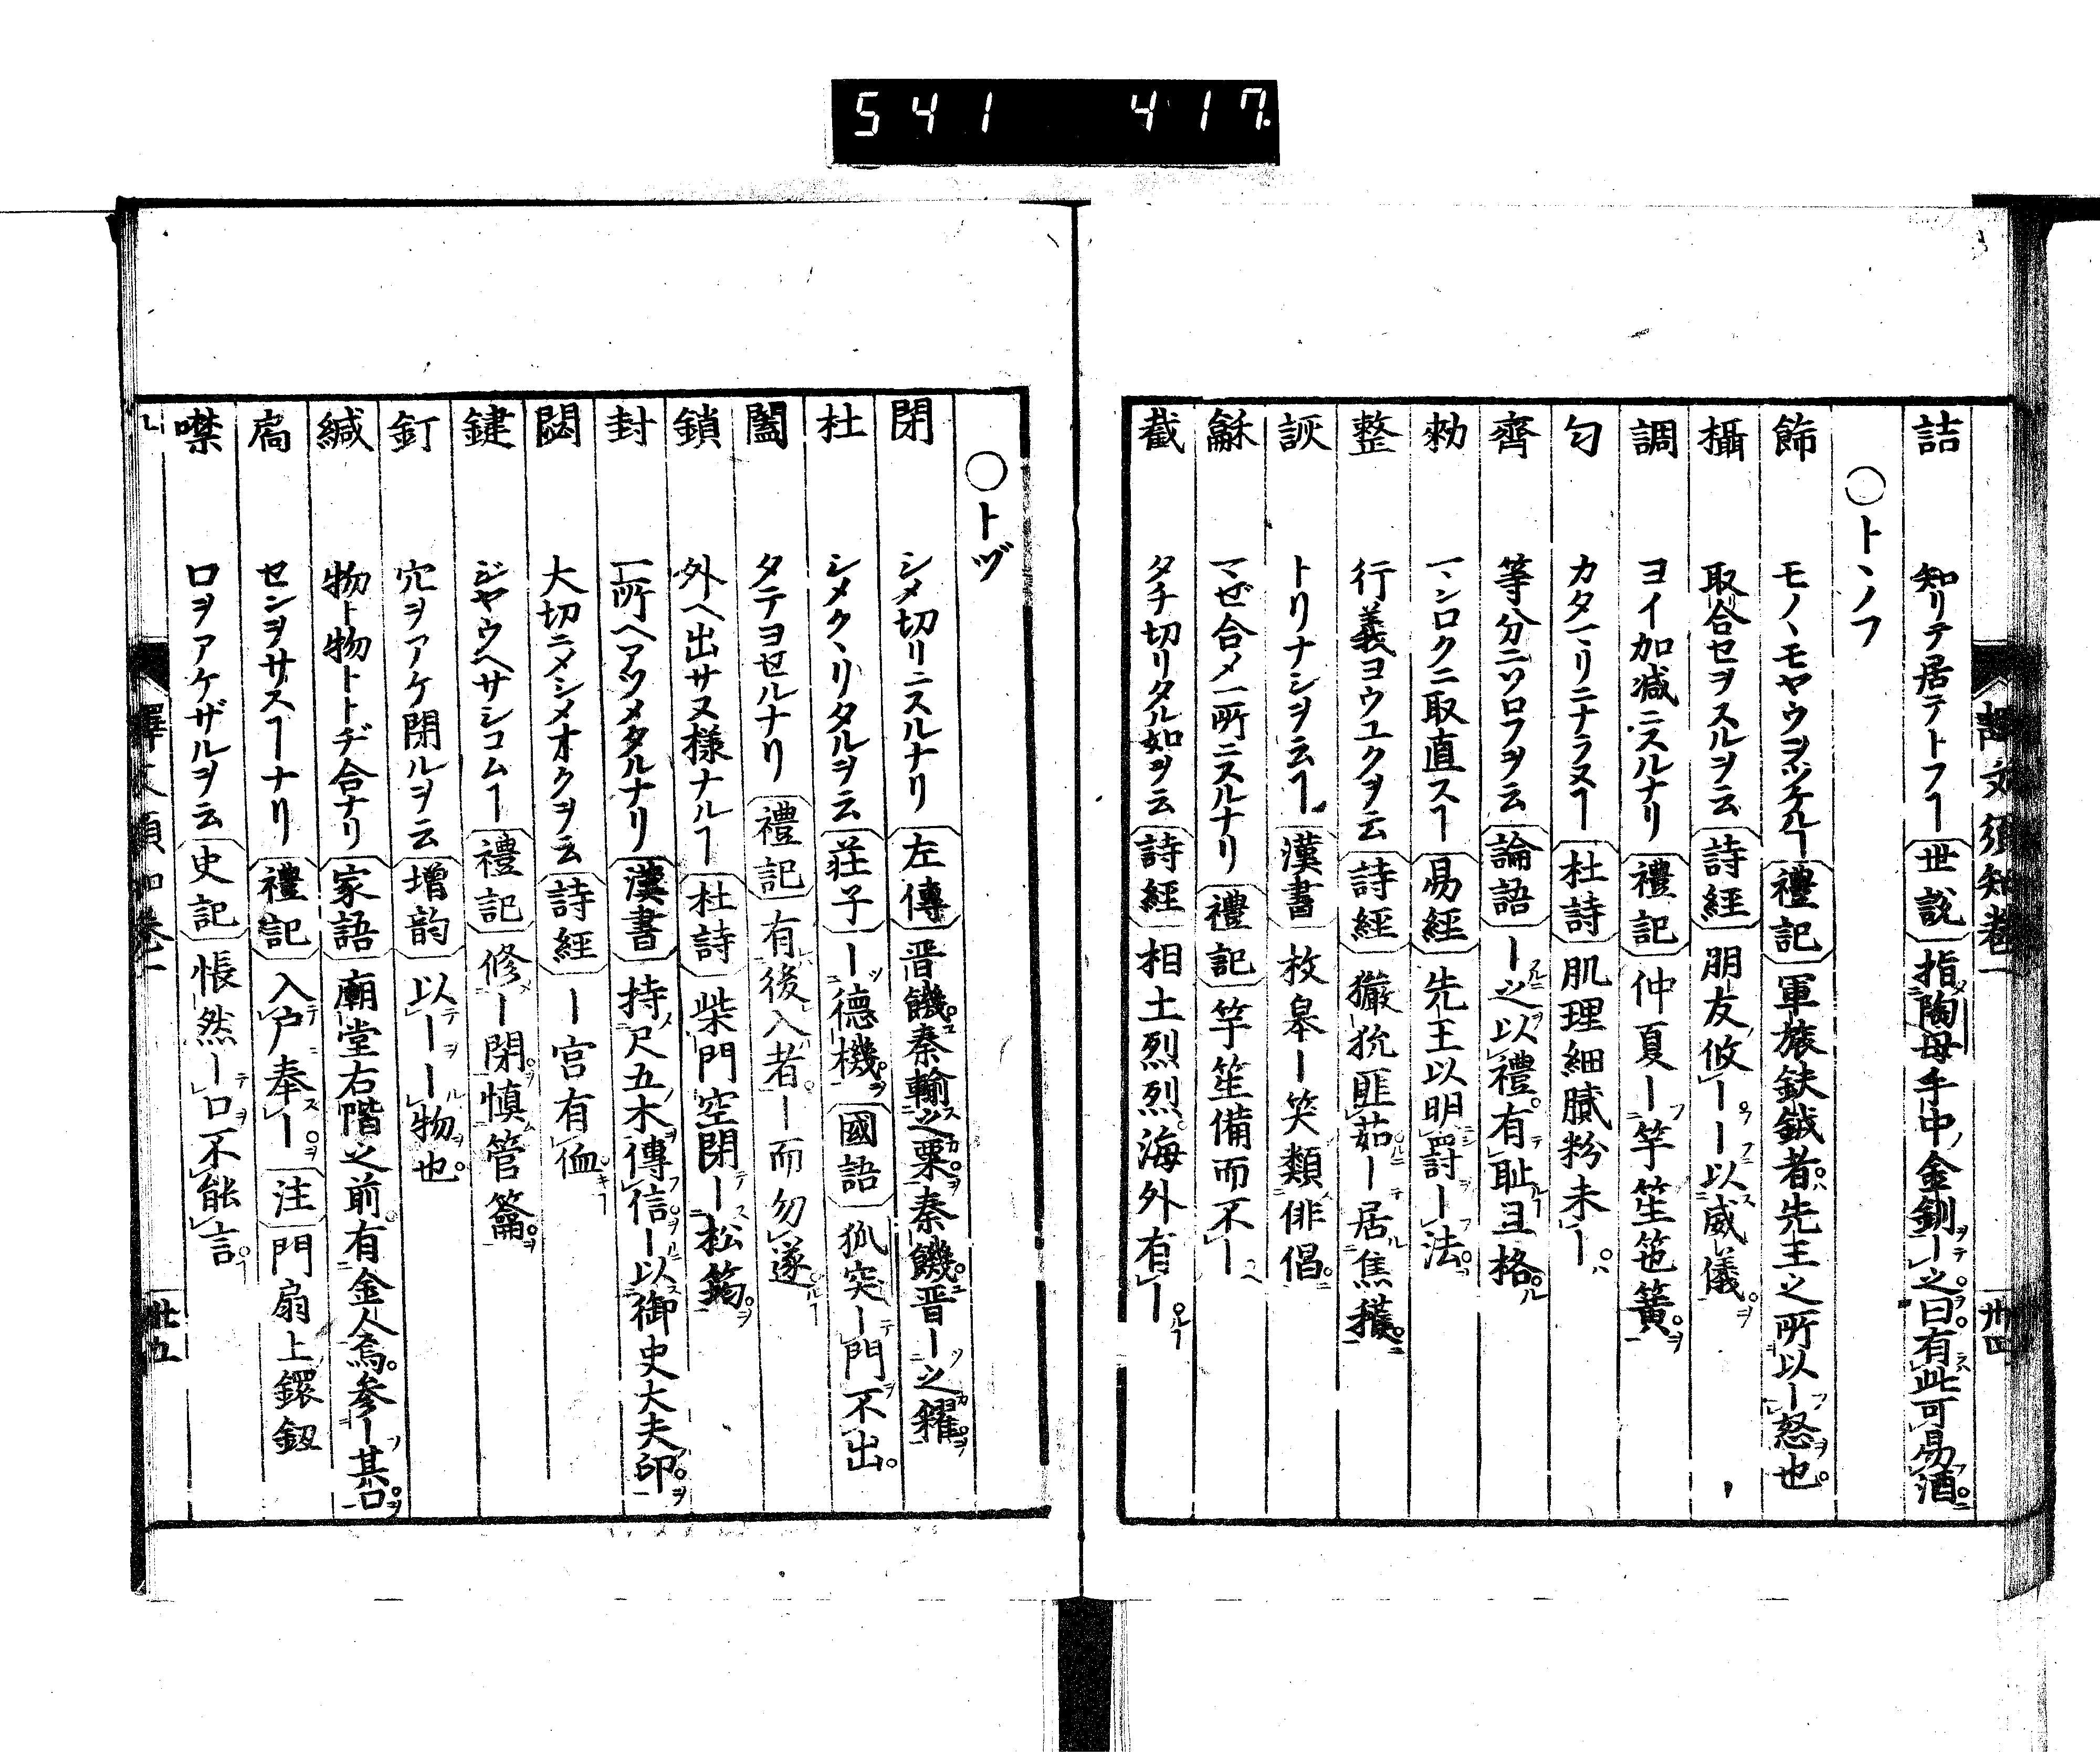 541 417
譯文須知卷一 卅四
詰 知リテ居テトフヿ 世説 指陶母手中金釧ー之曰有此可易酒
〇トヽノフ
飾 モノヽモヤウヲツケルヿ 禮記 軍旅鈇鉞者先王之所以ー怒也
攝 取合セヲスルヲ云 詩經 朋友攸ーー以威儀
調 ヨイ加減ニスルナリ 禮記 仲夏ー竽笙笆簧
匀 カタマリニナラヌヿ 杜詩 肌理細膩粉未ー
齊 等分ニソロフヲ云 論語 ー之以禮有耻且格
勑 マンロクニ取直スヿ 易經 先王以明罸ー法
整 行義ヨウユクヲ云 詩經 玁狁匪茹ー居焦穫
詼 トリナシヲ云ヿ 漢書 枚皋ー笑類俳倡
龢 マゼ合メ一所ニスルナリ 禮記 竽笙備而不ー
截 タチ切リタル如ヲ云 詩經 相土烈烈海外有ー
〇トヅ
閉 シメ切リニスルナリ 左傳 晋饑秦輸之粟秦饑晋ー之糴
杜 シメクヽリタルヲ云 莊子 ー德機 國語 狐突ー門不出
闔 タテヨセルナリ 禮記 有後入者ー而勿遂
鎖 外ヘ出サヌ様ナルヿ 杜詩 柴門空閉ー松筠
封 一所ヘアツメタルナリ 漢書 持尺五木傳信ー以御史大夫印
閟 大切ニメシメオクヲ云 詩經 ー宮有侐
鍵 ジヤウヘサシコムヿ 禮記 修ー閉慎管籥
釘 穴ヲアケ閉ルヲ云 增韵 以ーー物也
緘 物ト物トトヂ合ナリ 家語 廟堂右階之前有金人焉参ー其口
扃 センヲサスヿナリ 禮記 入戸奉ー 注 門扇上鐶鈕
噤 口ヲアケザルヲ云 史記 悵然ー口不能言
譯文須知卷一 卅五